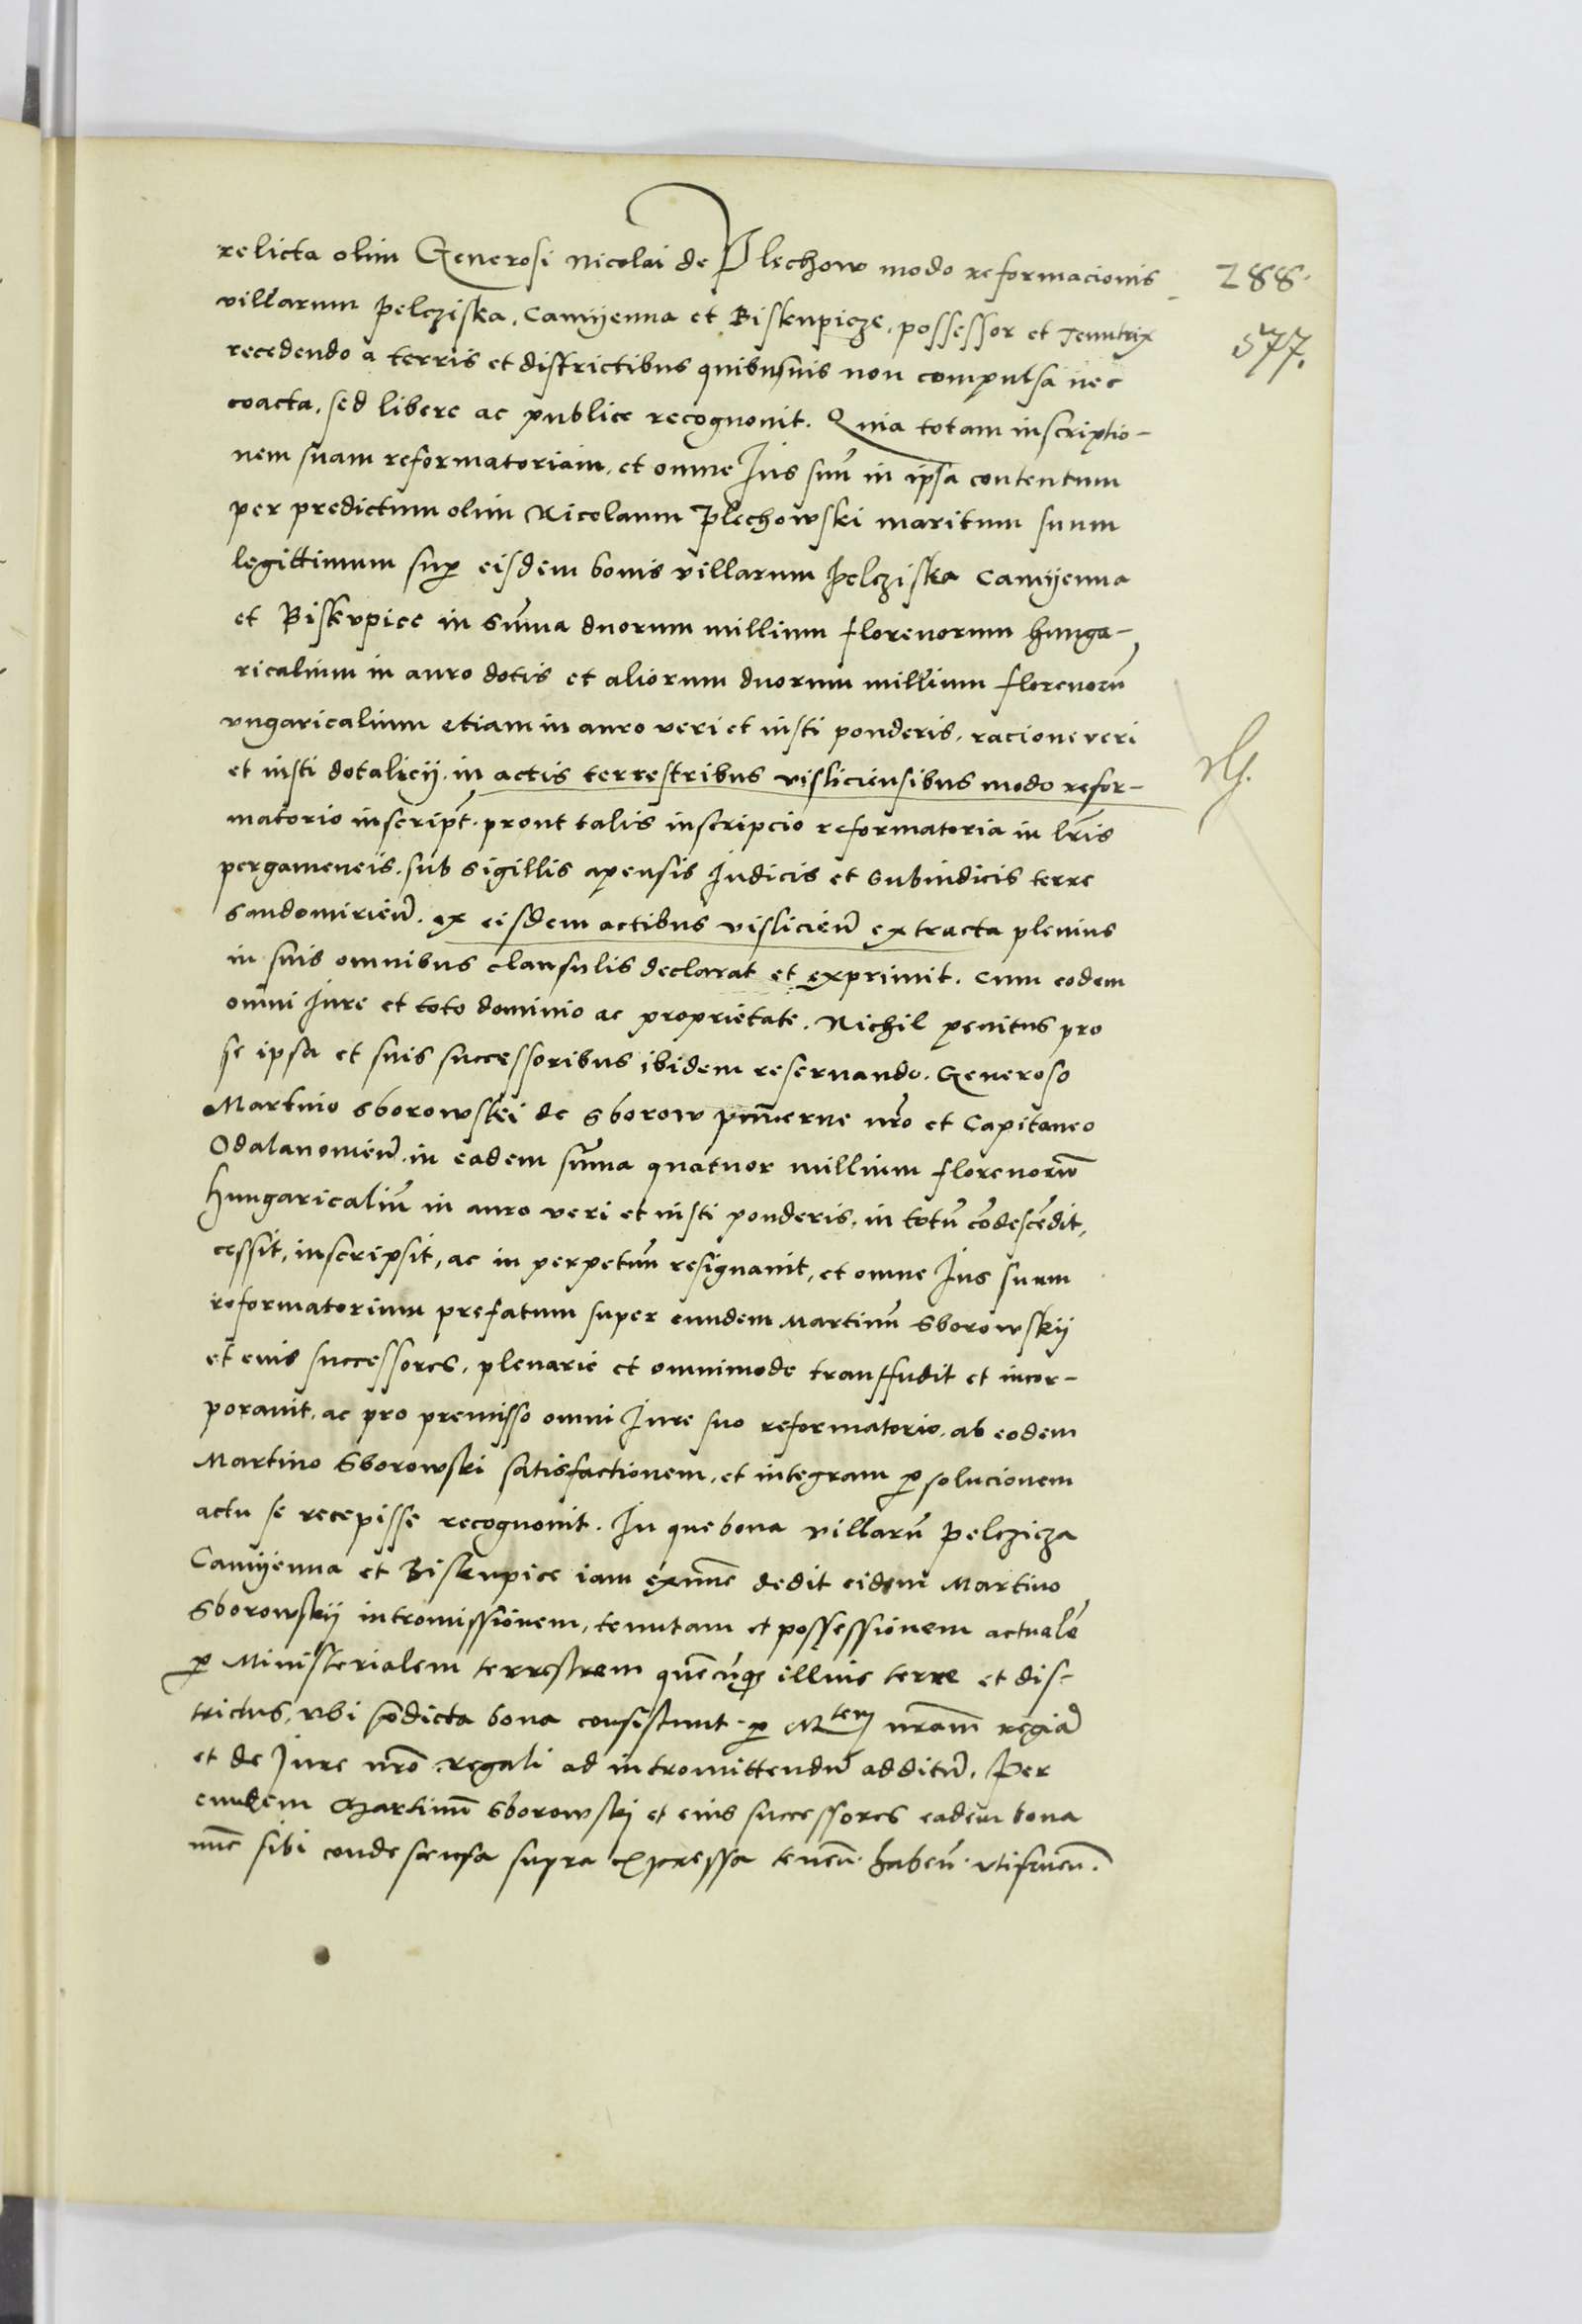 relicta olim Generosi Nicolai de Plechow modo reformacionis
288.
villarum Pelcziska, Camyenna et Biskupicze, possessor et Tenutrix
577.
recedendo a terris et districtibus quibusuis non compulsa nec
coacta, sed libere ac publice recognouit. Quia totam inscriptio-
nem suam reformatoriam, et omne Jus suũ in ipsa contentum
per predictum olim Nicolaum Plechowski maritum suum
legittimum sup eisdem bonis villarum Pelcziska Camyenna
et Biskupice in Sũma duorum millium florenorum hunga-
ricalium in auro dotis et aliorum duorum millium florenorũ
vngaricalium etiam in auro veri et iusti ponderis, racione veri
et iusti dotalicij, in actis terrestribus visliciensibus modo refor-
matorio inscript̃. prout talis inscripcio reformatoria in lr̃is
pergameneis, sub sigillis apensis Judicis et Subiudicis terre
Sandomirieñ. ex eisdem actibus vislicieñ extracta plenius
in suis omnibus clausulis declarat et exprimit. Cum eodem
omni Jure et toto dominio ac proprietate. Nichil penitus pro
se ipsa et suis successoribus ibidem reseruando. Generoso
Martino Sborowski de Sborow pincerne nr̃o et Capitaneo
Odalanouieñ. in eadem sũma quatuor millium florenorũ
Hungaricaliũ in auro veri et iusti ponderis, in totũ cõdescẽdit,
cessit, inscripsit, ac in perpetuũ resignauit, et omne Jus suum
reformatorium prefatum super eundem Martinũ Sborowskij
et eius successores, plenarie et omnimode transfudit et incor-
porauit, ac pro premisso omni Jure suo reformatorio, ab eodem
Martino Sborowski satisfactionem, et integram p solucionem
actu se recepisse recognouit. In que bona villarũ Pelczicza
Camyenna et Biskupice iam exnũc dedit eidem Martino
Sborowskij intromissionem, tenutam et possessionem actualẽ
p Ministerialem terrestrem quẽcũq illius terre et dis-
trictus, vbi p̃dicta bona consistunt. p M tem nr̃am regiã
et de Jure nr̃o regali ad intromittendũ additũ. Per
eundem Martinũ Sborowskj et eius successores eadem bona
nũc sibi condescensa supra expressa teneñ. habeñ. vtifrueñ.